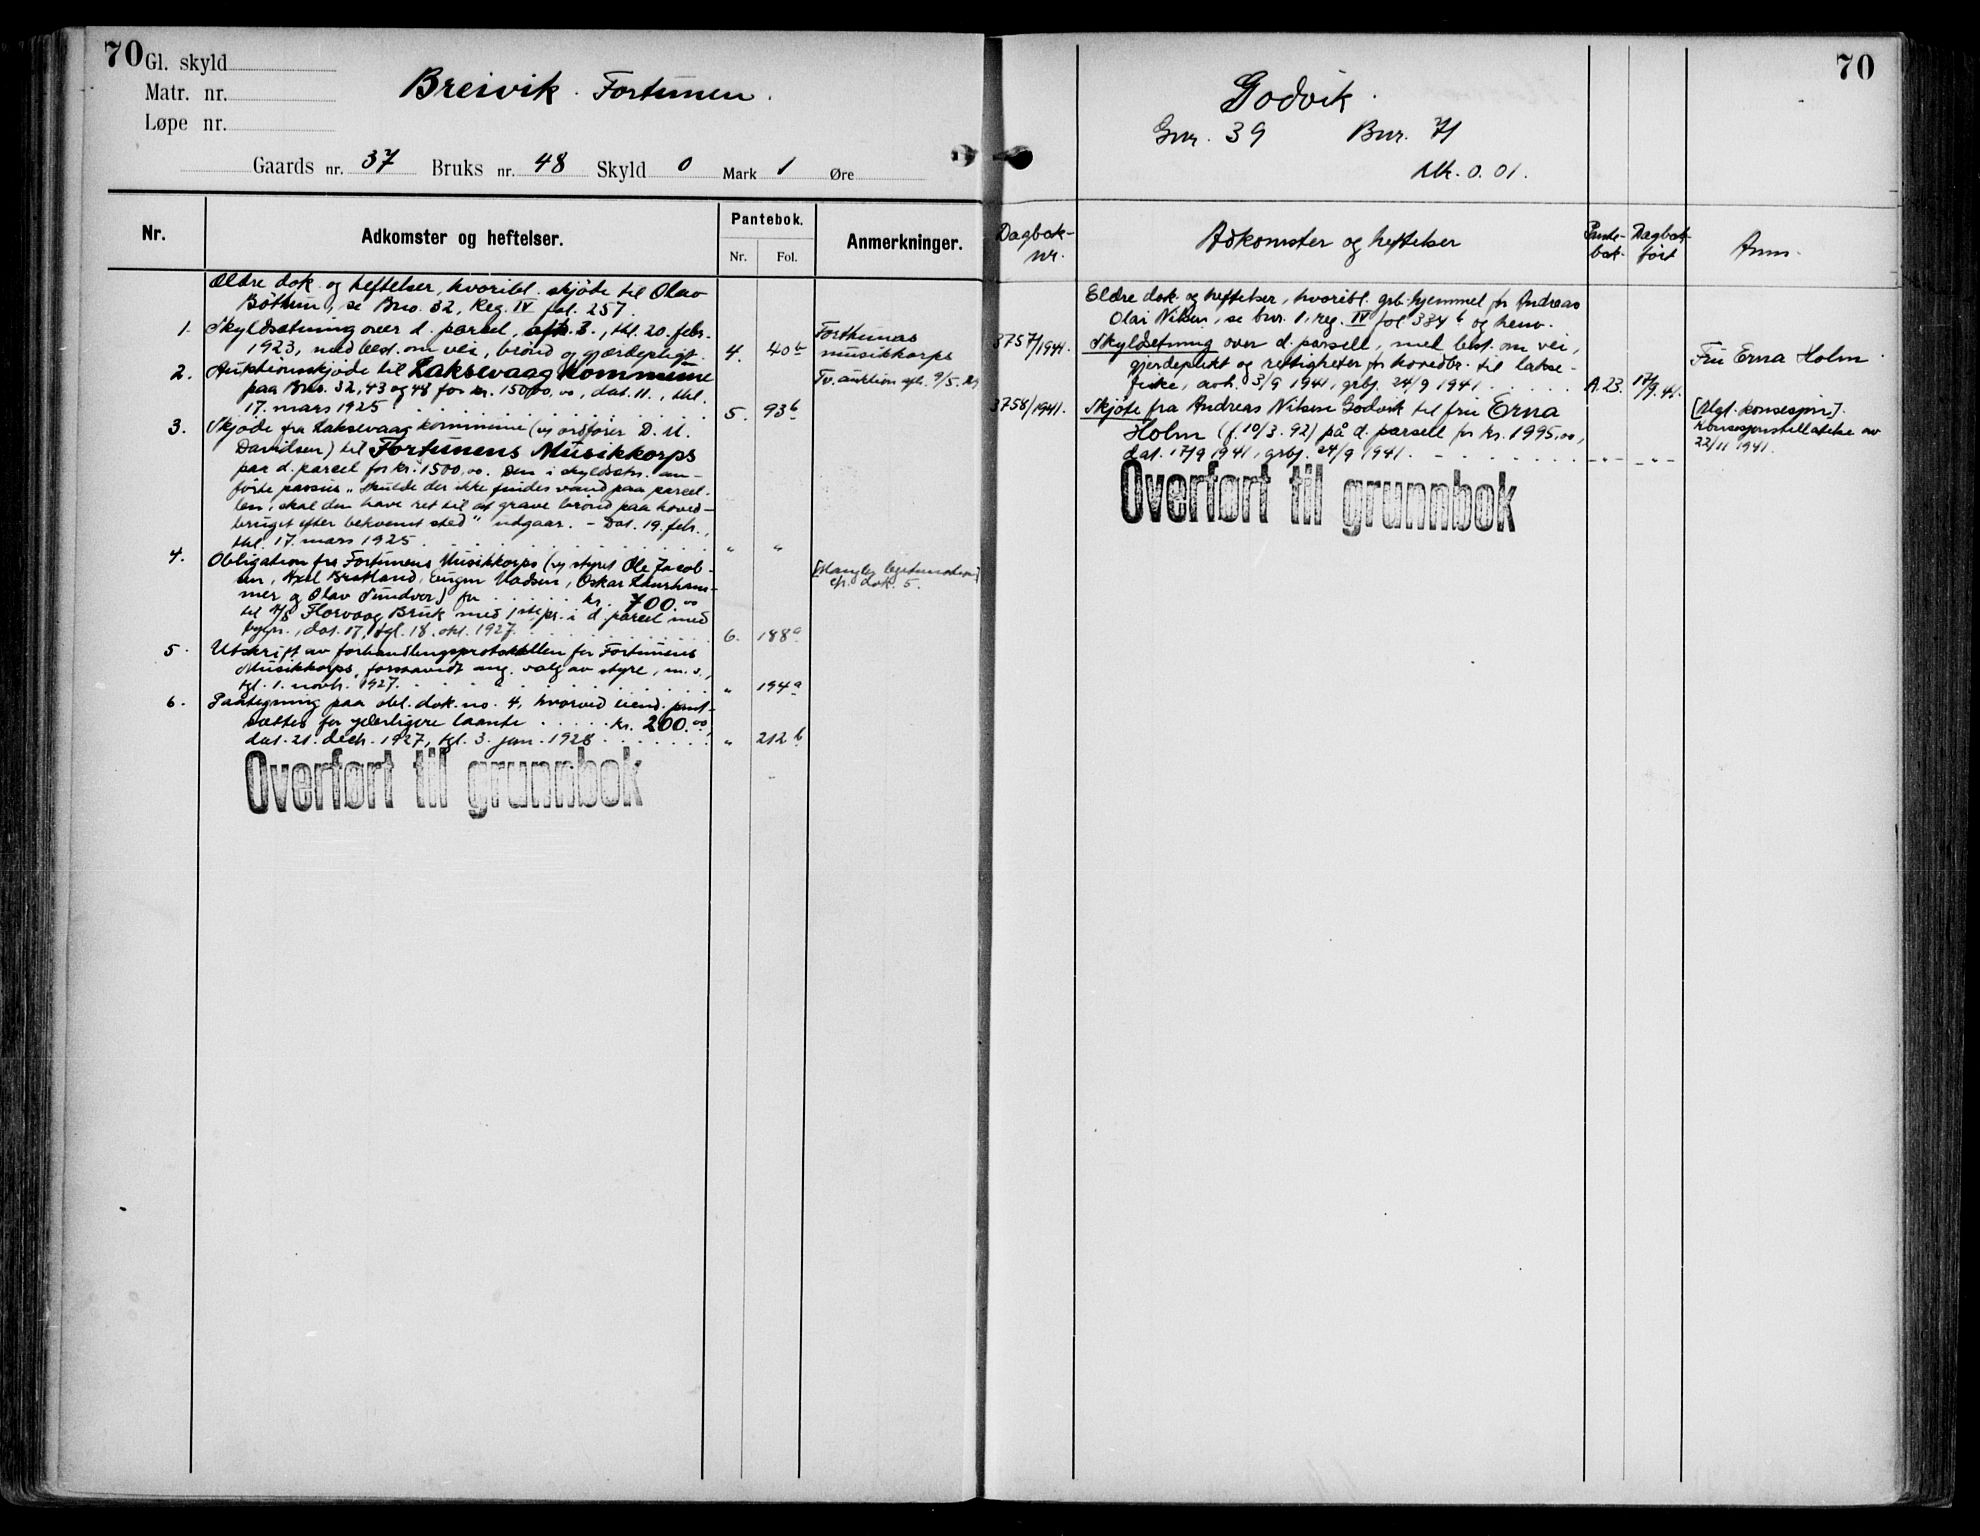 70 Gl. skyld
Matr. nr.
Løpe nr.
Breivik. Fortunen.
Gaards nr. 37 Bruks nr. 48 Skyld 0 Mark 1 Øre
Nr.
Adkomster og heftelser.
Pantebok.
Nr. Fol.
Anmerkninger.
Ældre dok. og heftelser, hvoribl. skjøde til Olav
Bøthun, se Bno. 32, Reg. IV fol. 257.
1. Skyldsætning over d. parsel, afh. 3., thl. 20. febr.
1923, med best. om vei, brønd og gjærdepligt. 4. 40 b
Forthunens
musikkorps
2. Auktionsskjøde til Laksevaag Kommune
paa Bno. 32, 43 og 48 for kr. 15000,00, dat. 11., thl.
17. mars 1925 5. 93 b
Tv. auktion afh. 9/5.
3. Skjøde fra Laksevaag kommune (v/ ordfører D. M.
Davidsen) til Fortunens Musikkorps
paa d. parcel for kr. 1500,00. Den i skyldsetn. an-
førte passus "Skulde der ikke findes vand paa parcel-
len, skal den have ret til at grave brønd paa hoved-
bruget efter bekvemt sted" udgaar. - Dat. 19. febr.,
thl. 17. mars 1925 " "
4. Obligation fra Fortunens Musikkorps (v/ styret Ole Jacob-
sen, Axel Bratland, Eugen Madsen, Oskar
mer og Olav) for kr. 700.00
til A/S Florvaag Bruk med 1ste pr. i d. parcel med
bygn., dat. 17, tgl. 18. okt. 1927 6. 188 a
[Mangler legitimation]
cfr. dok. 5.
5. Utskrift av forhandlingsprotokollen for Fortunens
Musikkorps, forsaavidt ang. valg av styre, m. v.,
tgl. 1. novbr. 1927. " 194 a
6. Paategning paa obl. dok. no. 4, hvorved eiend. pant-
sættes for yderligere laante kr. 200.00,
dat. 21. decb. 1927, tgl. 3. jan. 1928 " 212 b
Overført til grunnbok
70
Godvik.
Gnr. 39 Bnr. 71
Mk. 0.01.
Dagbok-
nr.
Adkomster og heftelser
Pante-
bok.
Dagbok-
ført
Anm.
Eldre dok. og heftelser, hvoribl. grb. hjemmel for Andreas
Olai Nilsen, se bnr. 1, reg. IV fol 334 b og henv.
3757/1941. Skyldsetning over d. parsell, med best. om vei,
gjerdeplikt og rettigheter for hovedbr. til lakse-
fiske, avh. 3/9 1941, grbf. 24/9 1941. A. 23. 17/9. 41.
Fru Erna Holm
3758/1941. Skjøte fra Andreas Nilsen Godvik til fru Erna
Holm (f. 10/3. 92) på d. parsell for kr. 1995,00,
dat. 17/9 1941, grbf. 24/9 1941. - " - - " -
[Mgl. konsesjon].
Konsesjonstillatelse av
22/11 1941.
Overført til grunnbok